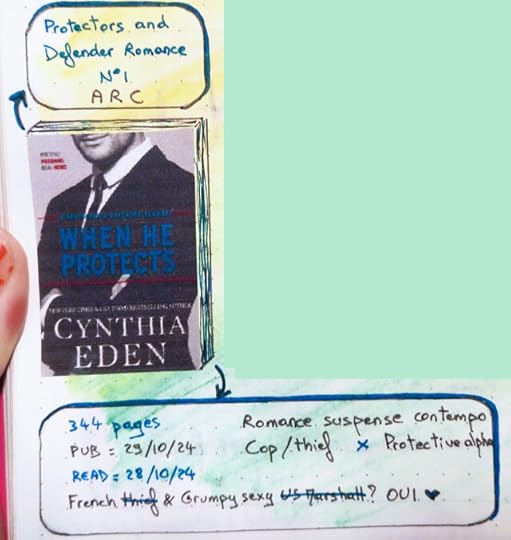 Protectors and
Defender Romance
N°1
ARC
WHEN HE
PROTECTS
CYNTHIA
EDEN
344 pages
PUB = 29/10/24
READ = 28/10/24
Romance suspense contempo
Cop/thief x Protective alpha
French thief & Grumpy sexy US Marshall? OUI ♥